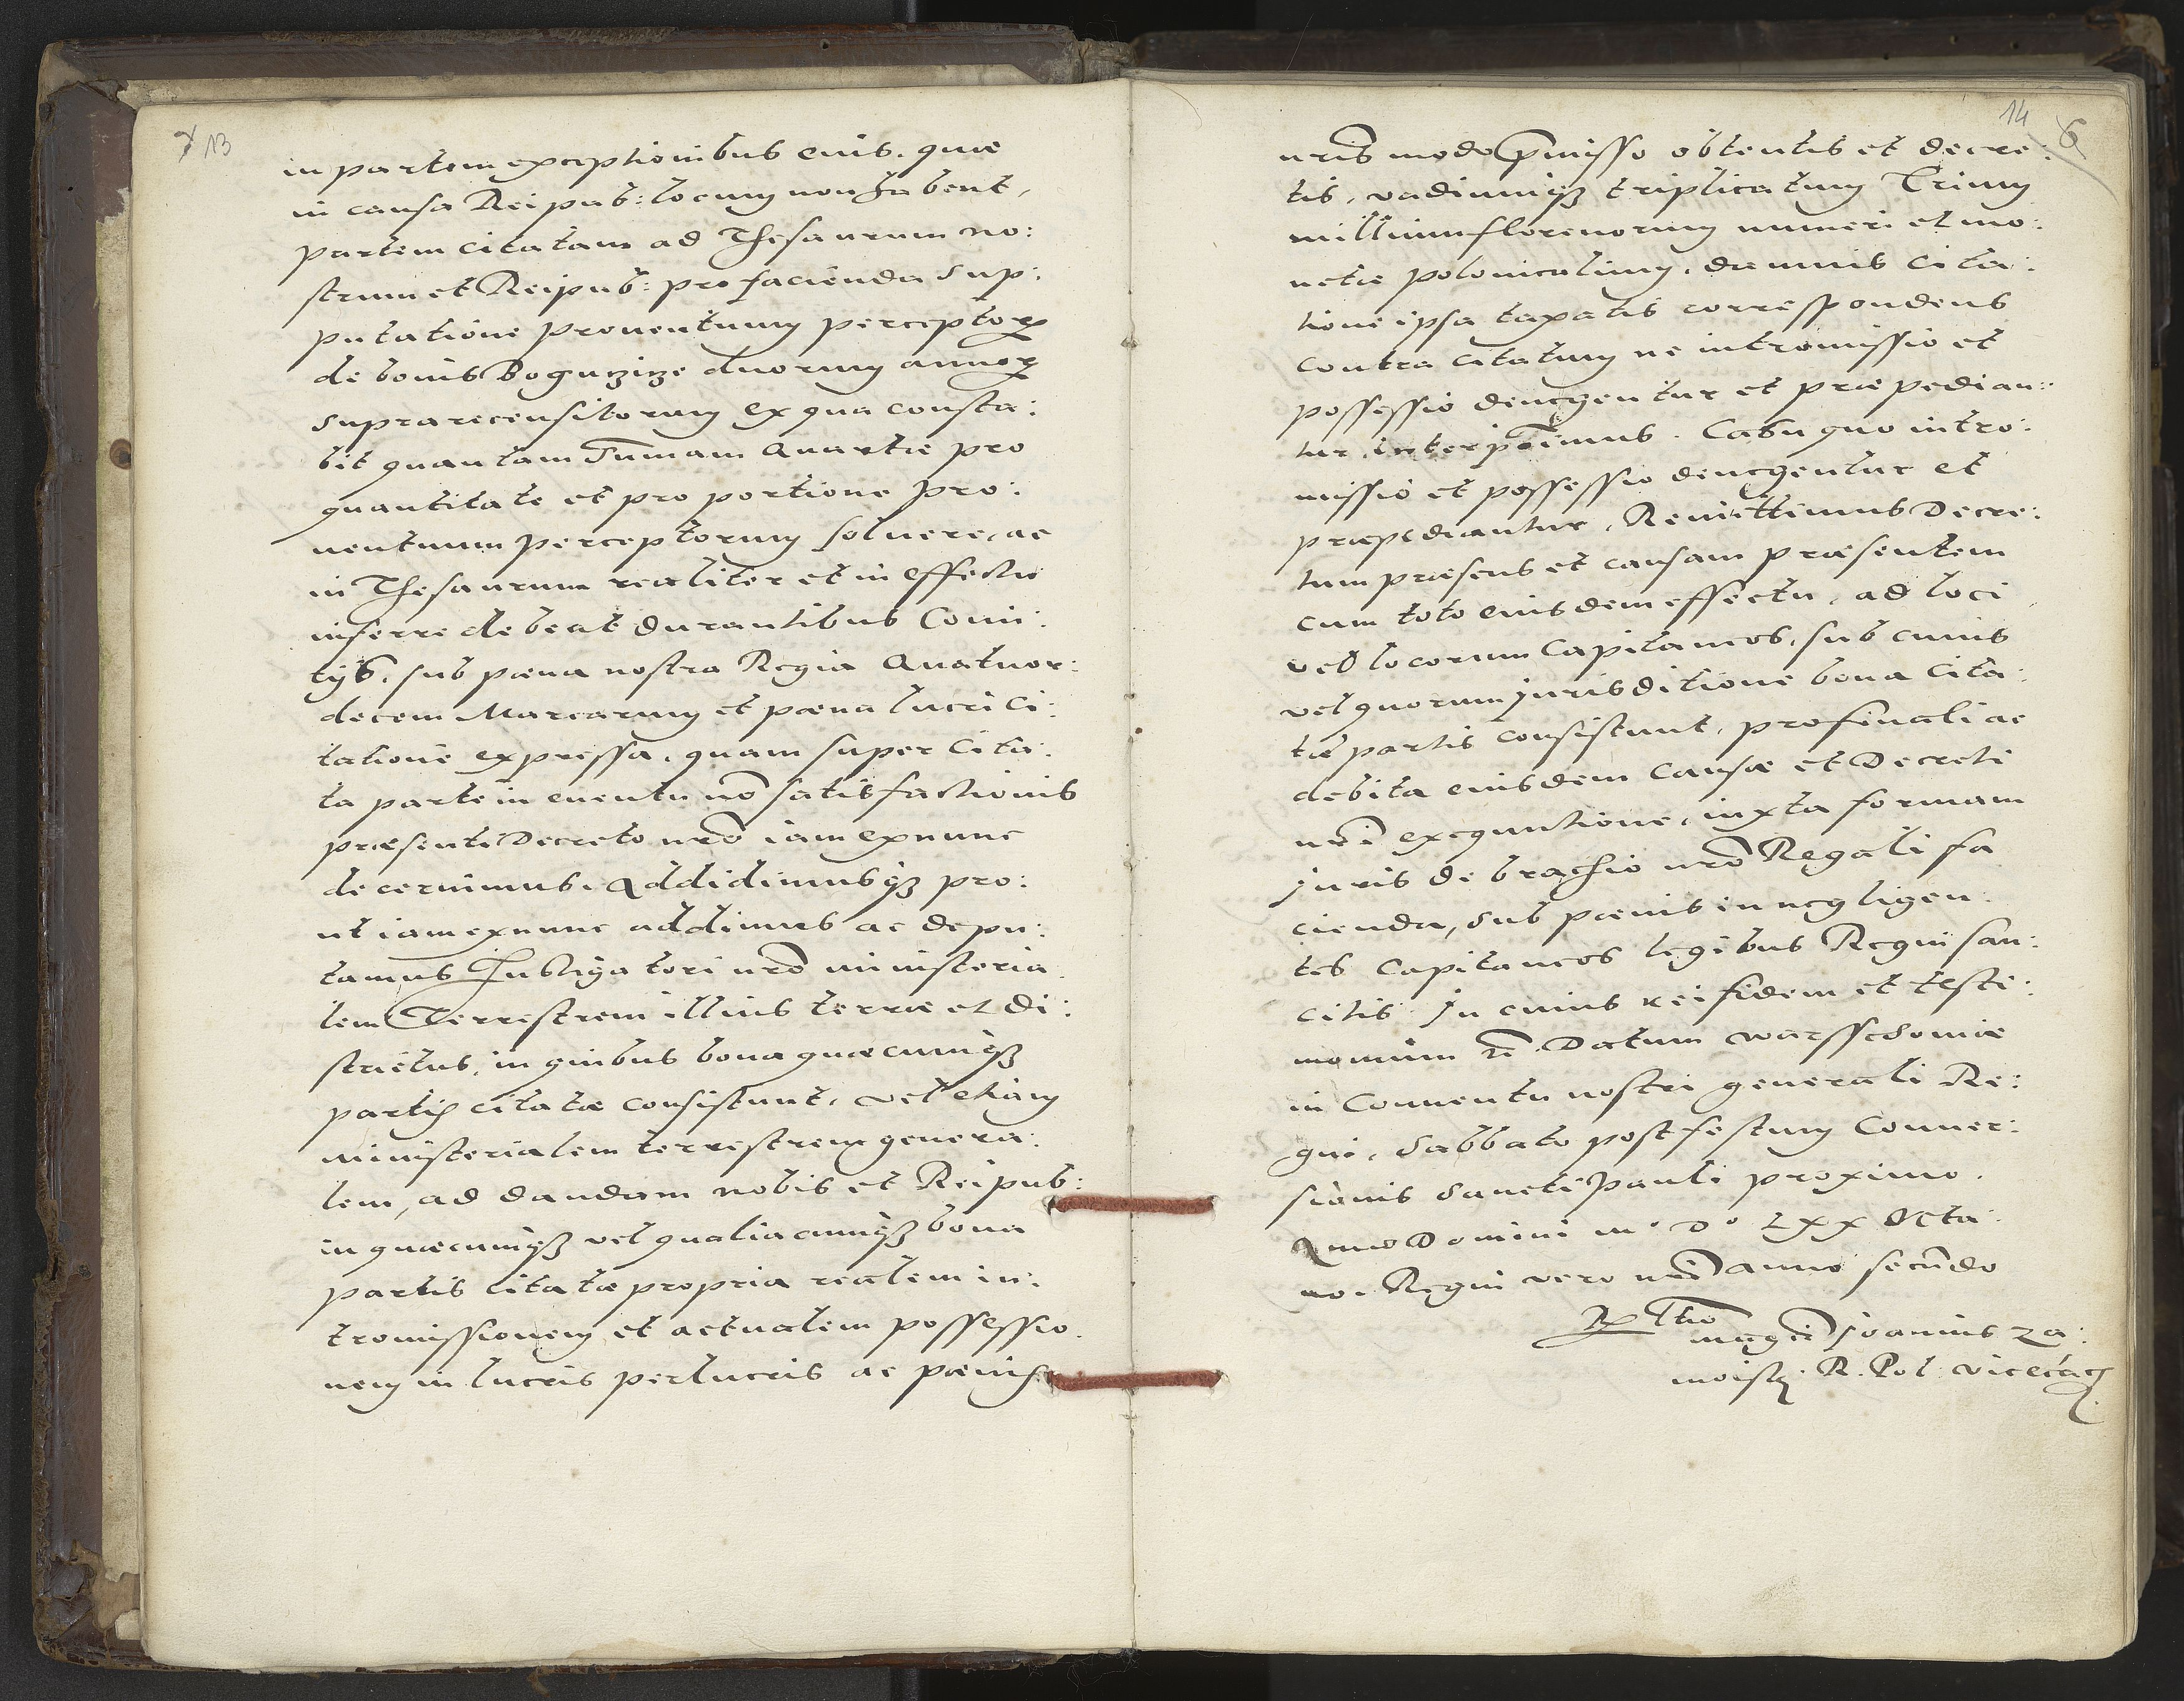 7 13
in partem exceptionibus eius. quae
in causa Reipub: locum non habent,
partem citatam ad Thesaurum no:
strum et Reipub: pro facienda sup:
putatione prouentuum perceptor
de bonis Boguczize duorum annor
suprarecensitorum ex qua consta:
bit quantam sumam Quartae pro
quantitate et pro portione pro:
uentuum perceptorum soluere, ac
in Thesaurum realiter et in effectu
inferre debeat durantibus Comi:
tijs, sub paena nostra Regia Quatuor:
decem Marcarum et paena lucri Ci:
tatione expressa, quam super Cita:
ta parte in euentu no satisfactionis
praesenti Decreto nro iam exnunc
decernimus. Addidimusq3 pro:
ut iam exnunc addimus ac depu:
tamus Instigatori nro ministeria
lem Terrestrem illius terrae et di:
strictus, in quibus bona quaecumq3
partis citatae consistunt, vel etiam
ministerialem terrestrem genera:
lem, ad dandam nobis et Reipub:
in quaecumq3 vel qualiacumq3 bona
partis citatae propria realem in:
tromissionem et actualem possessio
nem in lucris perlucris ac paenis
14 6
nris modo pmisso obtentis et decre:
tis, vadiumq3 triplicatum Trium
millium florenorum numeri et mo:
netae polonicalium, damnis Cita:
tione ipsa taxatis correspondens
contra citatum ne intromissio et
possessio denegentur et praepedian:
tur, interponimus. Casu quo intro:
missio et possessio denegentur et
praepediantur, Remittimus Decre:
tum praesens et causam praesentem
cum toto eiusdem effectu, ad loci
vel locorum Capitaneos, sub cuius
vel quorum jurisditione bona Cita:
tae partis consistunt, pro finali ac
debita eiusdem Causae et Decreti
nri exequutione, iuxta formam
juris de brachio nro Regali fa
cienda, sub paenis in negligen:
tes Capitaneos legibus Regni san:
citis. In cuius rei fidem et testi:
monium Datum warsschouiae
in Conuentu nostri generali Re:
gni, Sabbato post festum Conuer:
sionis Sancti Pauli proximo.
Anno Domini m° D° Lxx Octa:
uo. Regni vero nri anno secundo
Rtio
magci Joannis Za:
moisq. R. Pol. vicecac